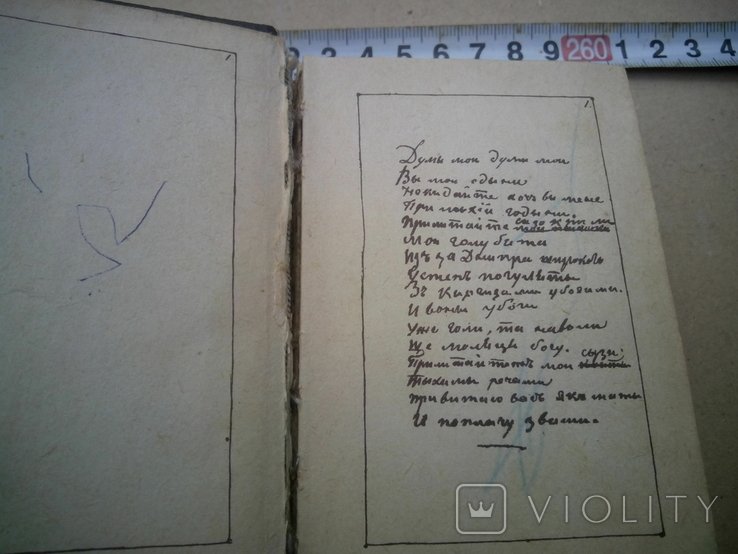 3 4 5 6 7 8 9 260 1 2 3 4
1.
Думы мои думы мои
Вы мои едыни
Некидайте хочь вы мене
При лыхій годыни.
Прилитайте сызокрыли
Мои голубята
Изъ за Днипра широкого
Устепъ погуляты
Зъ Киргизами убогими.
И воны убоги
Уже голи, та наволи
Ще молятця богу. сызи;
Прилитайтежъ мои
Тыхимы речами
Привитаю васъ якъ маты
И поплачу звами.
VIOLITY